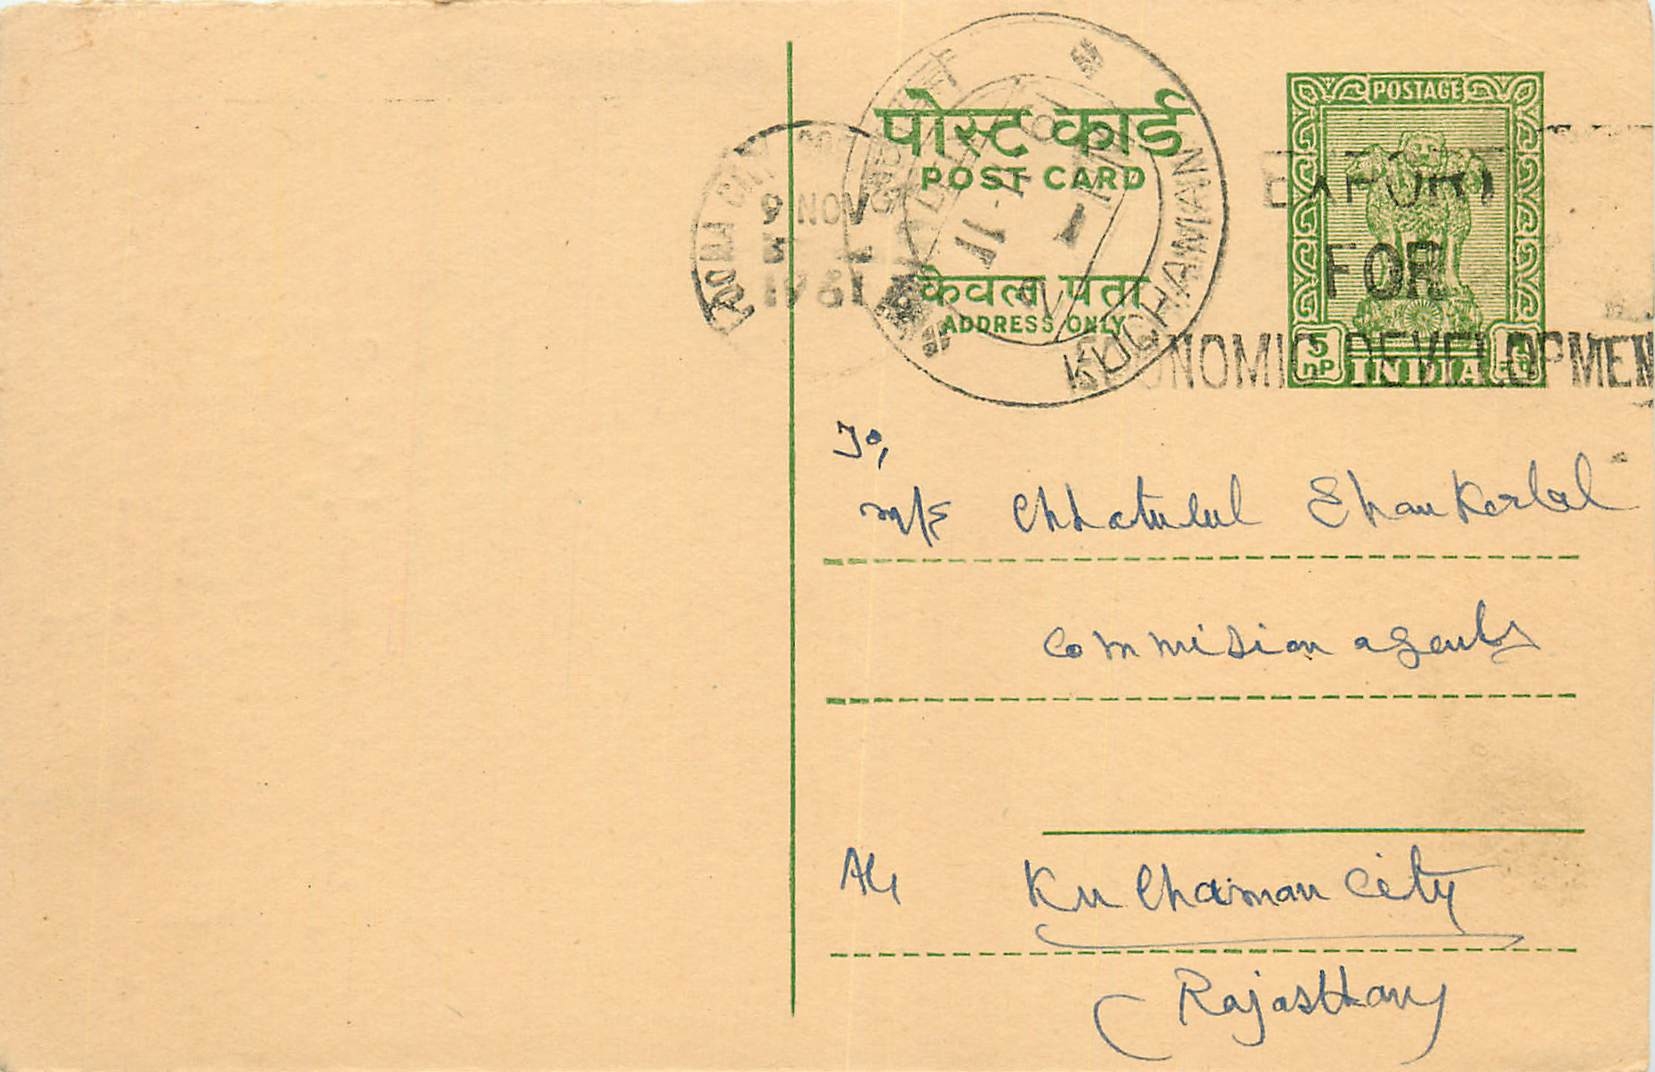 पोस्ट कार्ड
POST CARD
केवल पता
ADDRESS ONLY
POSTAGE
5
nP
INDIA
CITY
9 NOV
1961
KUCHAMAN
EXPORT
FOR
ECONOMIC DEVELOPMEN
To,
M/s Chhatulal Shankerlal
Commision agents
At, Kuchaman City
(Rajasthan)